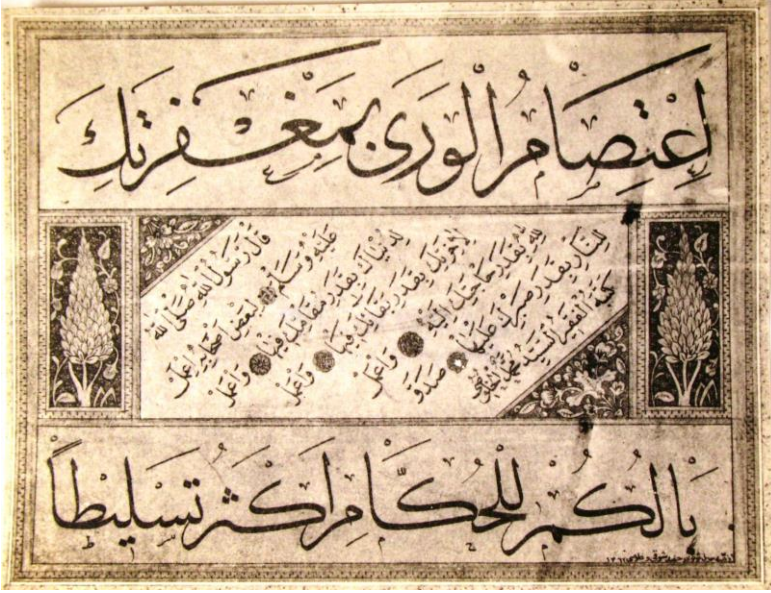 اِعْتِصَامُ الْوَرَىٰ بِمَغْفِرَتِكَ
قَالَ رَسُولُ اللهِ صَلَّى اللهُ
عَلَيْهِ وَسَلَّمَ لِبَعْضِ اَصْحَابِهِ اِعْمَلْ
لِدُنْيَاكَ بِقَدَرِ مَقَامِكَ فِيهَا وَاعْمَلْ
لِاٰخِرَتِكَ بِقَدَرِ بَقَائِكَ فِيهَا وَاعْمَلْ
لِلّٰهِ بِقَدَرِ حَاجَتِكَ اِلَيْهِ وَاعْمَلْ
لِلنَّارِ بِقَدَرِ صَبْرِكَ عَلَيْهَا
كَتَبَهُ الْفَقِيرُ السَّيِّدُ مُحَمَّدُ
بَالُكُمْ لِلْحُكَّامِ اَكْثَرُ تَسْلِيطاً